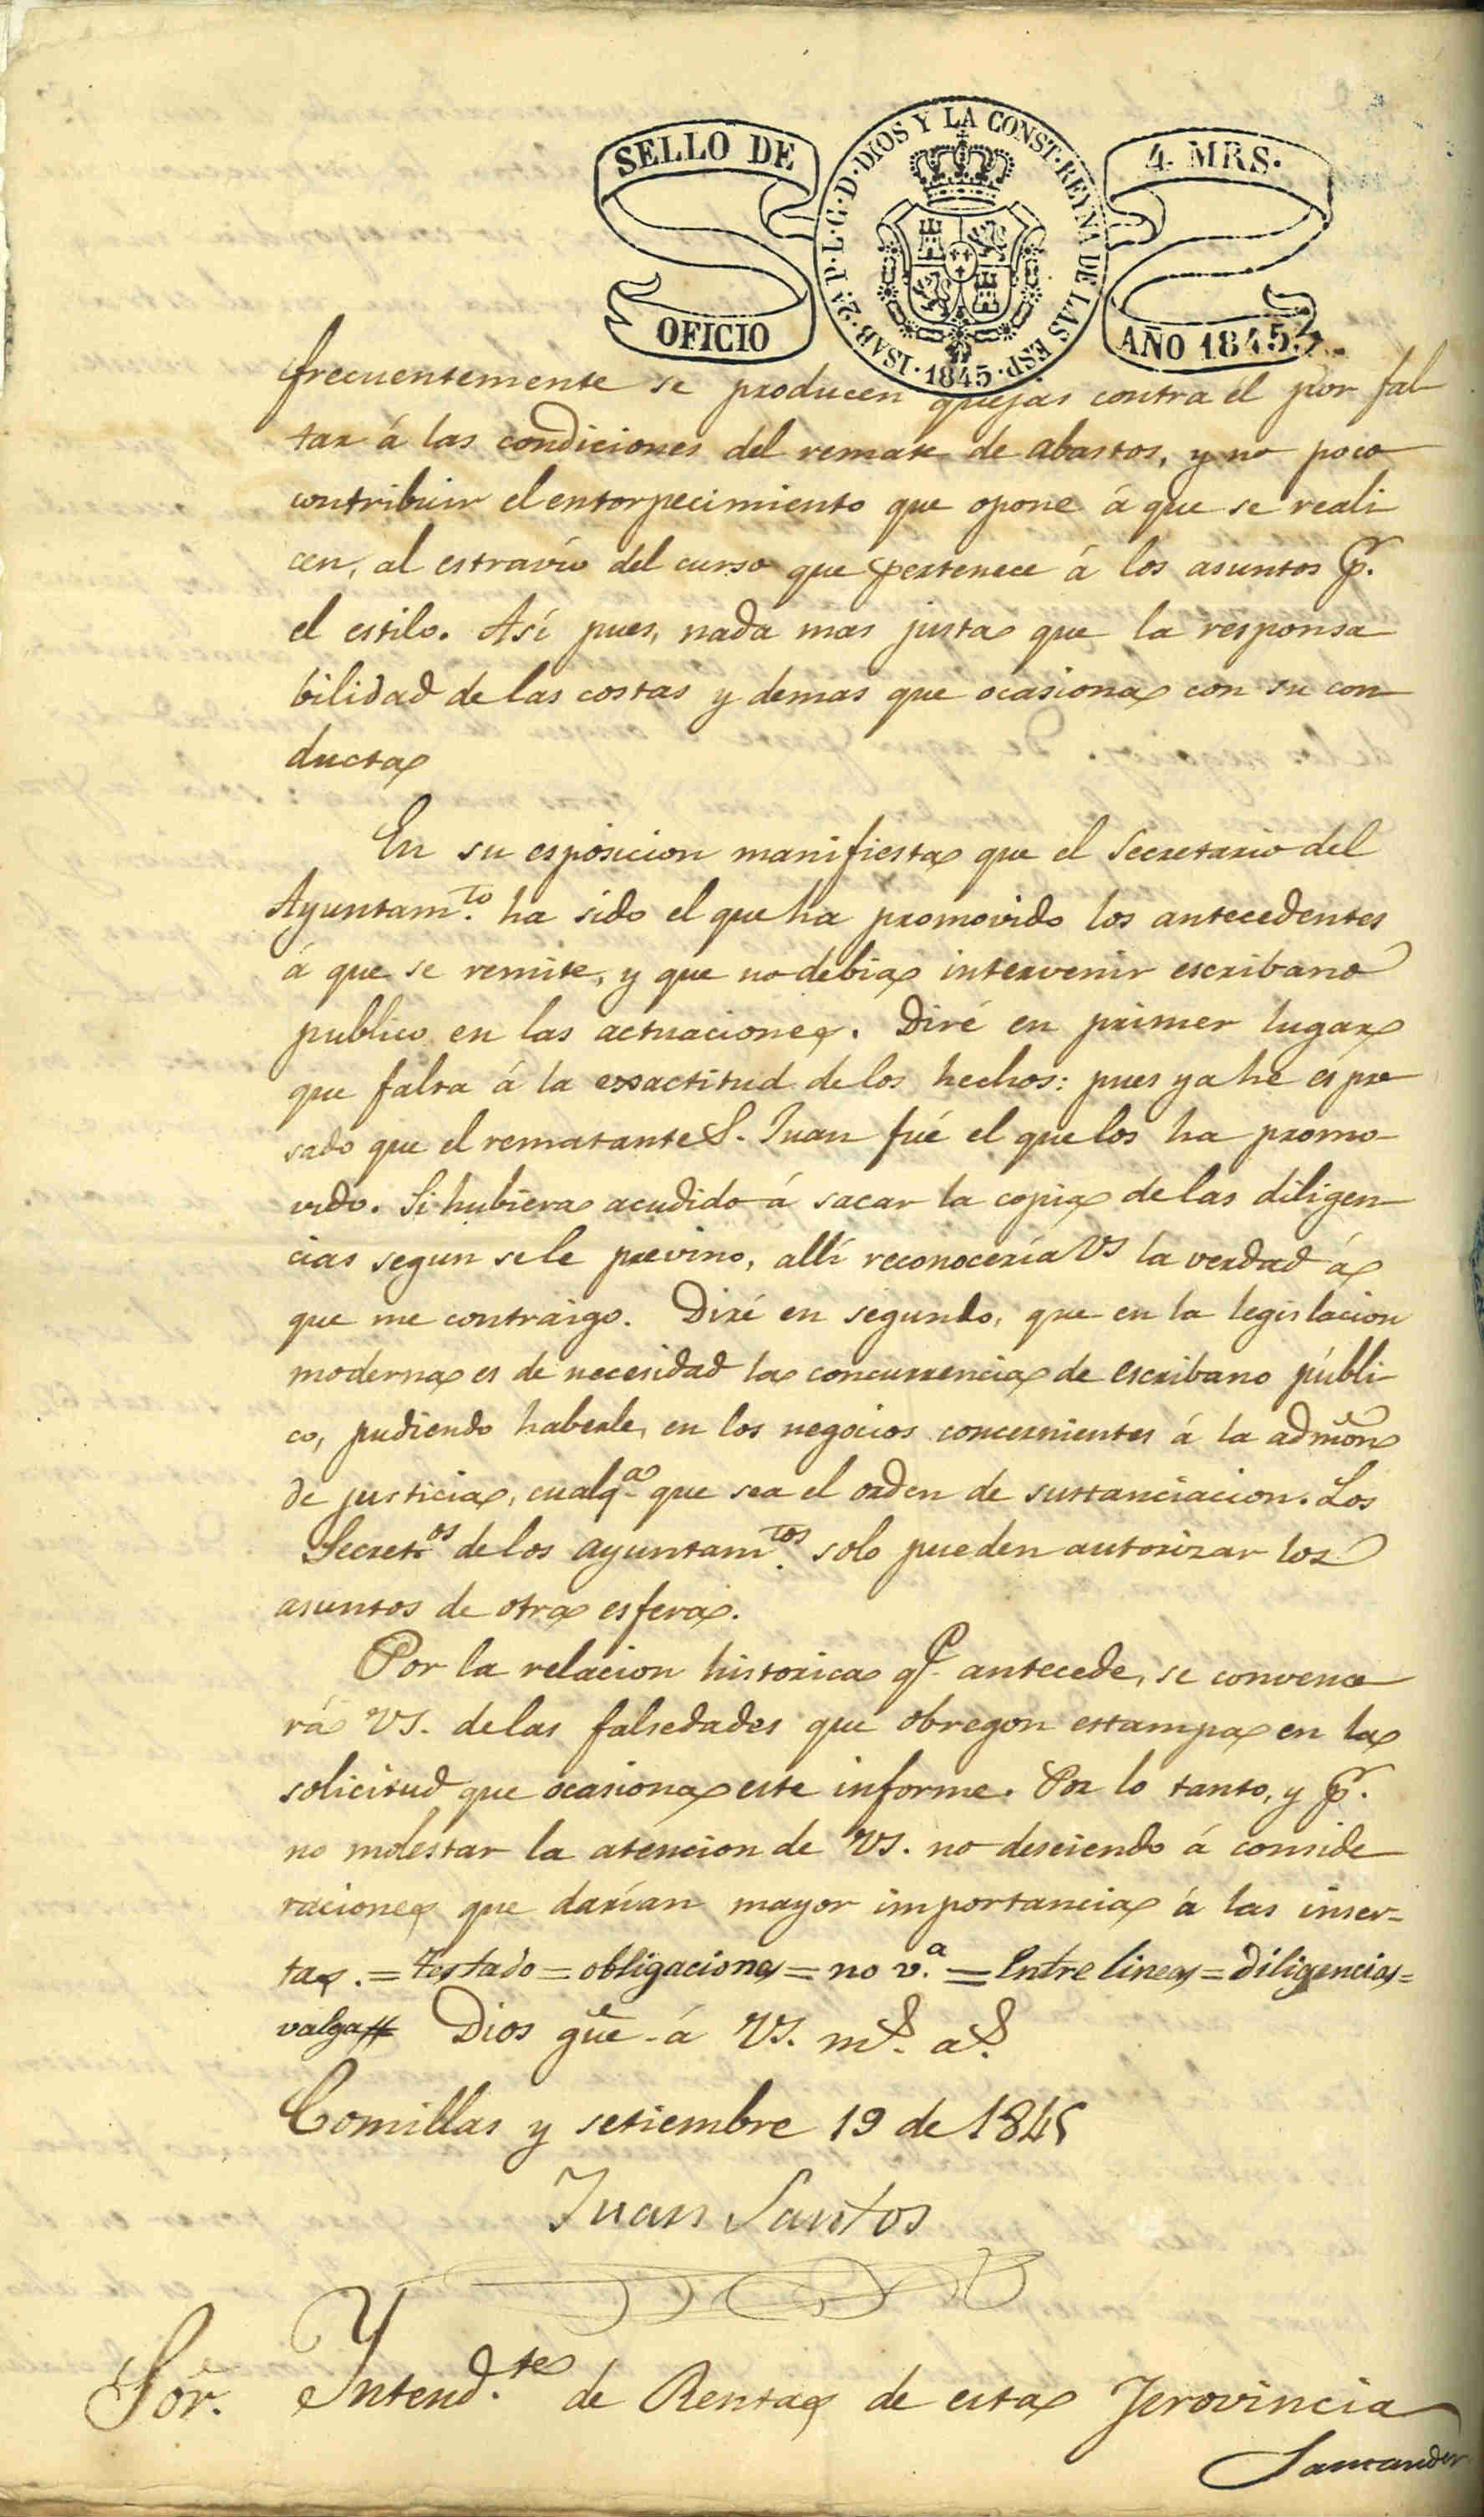 SELLO DE OFICIO
ISAB. 2ª P. L. G. D. DIOS Y LA CONST. REYNA DE LAS ESP. 1845.
4 MRS. AÑO 1845.
frecuentemente se producen quejas contra él por fal
tar á las condiciones del remate de abastos, y no poco
contribuir el entorpecimiento que opone á que se reali
cen, al estravío del curso que pertenece á los asuntos pr.
el estilo. Así pues, nada mas justa que la responsa
bilidad de las costas y demas que ocasiona con su con
ducta
En su esposicion manifiesta que el Secretario del
Ayuntamto. ha sido el que ha promovido los antecedentes
á que se remite, y que no debia intervenir escribano
publico en las actuaciones. Diré en primer lugar
que falta á la exsactitud de los hechos: pues ya he espre
sado que el rematante S. Juan fué el que los ha promo-
vido. Si hubiera acudido á sacar la copia de las diligen-
cias segun se le previno, allí reconocería VS la verdad á
que me contraigo. Diré en segundo, que en la legislacion
moderna es de necesidad la concurrencia de escribano públi-
co, pudiendo haberle, en los negocios concernientes á la admon
de justicia, cualqa. que sea el orden de sustanciacion. Los
Secretos. de los ayuntamtos. solo pueden autorizar los
asuntos de otra esfera.
Por la relacion historica qe. antecede, se convence
rá VS. de las falsedades que obregon estampa en la
solicitud que ocasiona este informe. Por lo tanto, y pr.
no molestar la atencion de VS. no desciendo á conside
raciones que darían mayor importancia á las inser-
tas. = testado = obligaciones = no v.a = Entre lineas = diligencias =
valga # Dios gue. á VS. ms. as.
Comillas y setiembre 19 de 1845
Juan Santos
Sor. Yntend.te de Rentas de esta Provincia
Santander